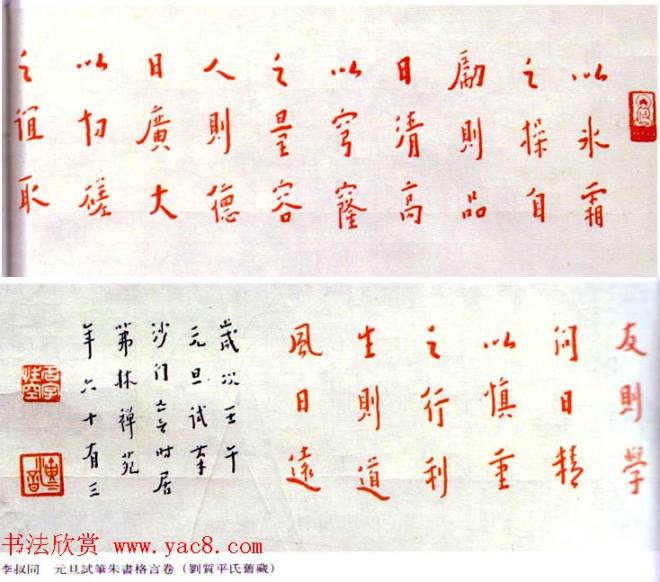 以氷霜
之操自
勵則品
日清高
以穹窿
之量容
人則德
日廣大
以切磋
之誼取
友則學
問日精
以慎重
之行利
生則道
風日遠
歲次壬午
元旦試筆
沙门亡言时居
茀林禪苑
年六十有三
书法欣赏 www.yac8.com
李叔同 元旦試筆朱書格言卷（劉質平氏舊藏）